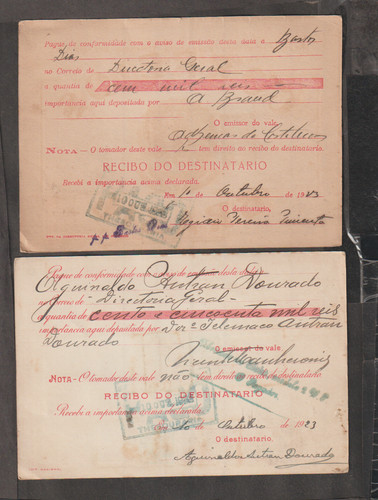 Pague, de conformidade com o aviso de emissão desta data a Bastos
Dias
no Correio de Directoria Geral
a quantia de cem mil reis
importancia aqui depositada por A Brand
O emissor do vale,
NOTA — O tomador deste vale tem direito ao recibo do destinatario.
RECIBO DO DESTINATARIO
Recebi a importancia acima declarada.
Em 10 Outubro de 1923
O destinatario,
10 OUT
p.p.
Pague de conformidade com o aviso de emissão desta data a
Aguinaldo Autran Dourado
no Correio de Directoria Geral
a quantia de cento e cincoenta mil reis
importancia aqui depositada por Dor Telemaco Autran
Dourado
O emissor do vale
NOTA — O tomador deste vale não tem direito ao recibo do destinatario
RECIBO DO DESTINATARIO
Recebi a importancia acima declarada
10 Outubro de 1923
10 OUT
O destinatario,
Aguinaldo Autran Dourado